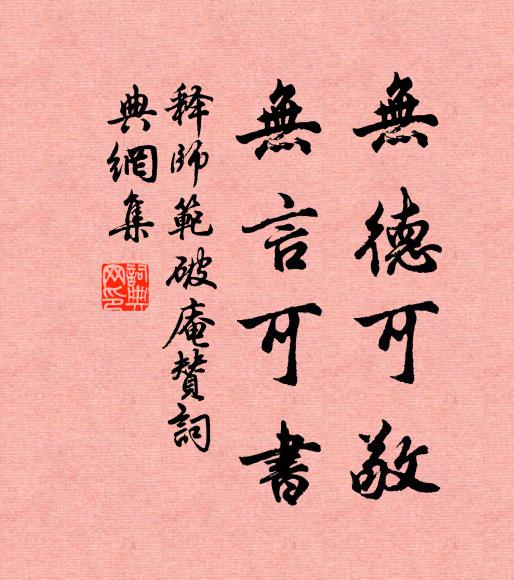 無德可敬
無言可書
释師範破庵贊詞
典網集
詞典網印